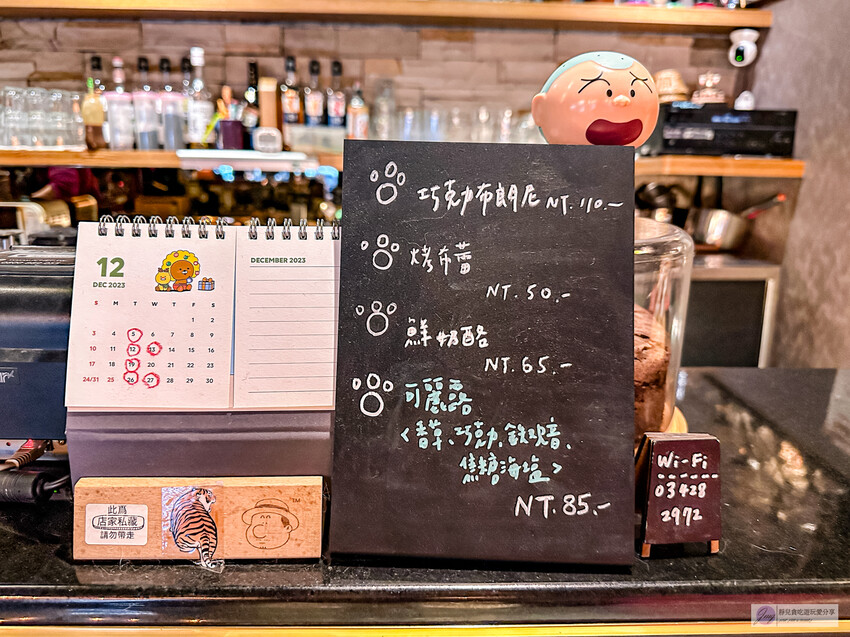 12
DEC 2023
S M T W T F S
1 2
3 4 5 6 7 8 9
10 11 12 13 14 15 16
17 18 19 20 21 22 23
24/31 25 26 27 28 29 30
DECEMBER 2023
此為
店家私藏
請勿帶走
巧克力布朗尼 NT.110.-
烤布蕾
NT.50.-
鮮奶酪
NT.65.-
可麗露
<香草、巧克力、鉄观音、
焦糖海塩>
NT.85.-
Wi-Fi
03428
2972
靜兒貪吃遊玩愛分享